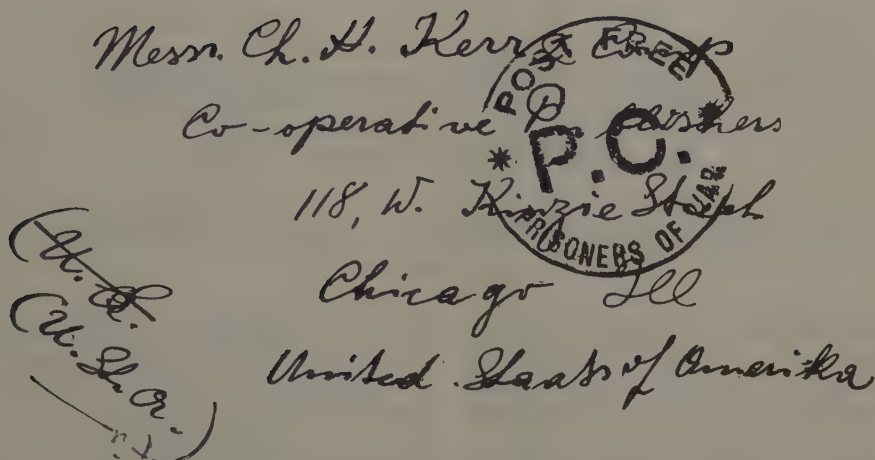 Messr. Ch. H. Kerr & Comp
Co-operative Publishers
118, W. Kinzie Street
Chicago Ill
United Staats of Amerika
(U. S.
(U. St. a.
POST FREE
P.C.
PRISONERS OF WAR